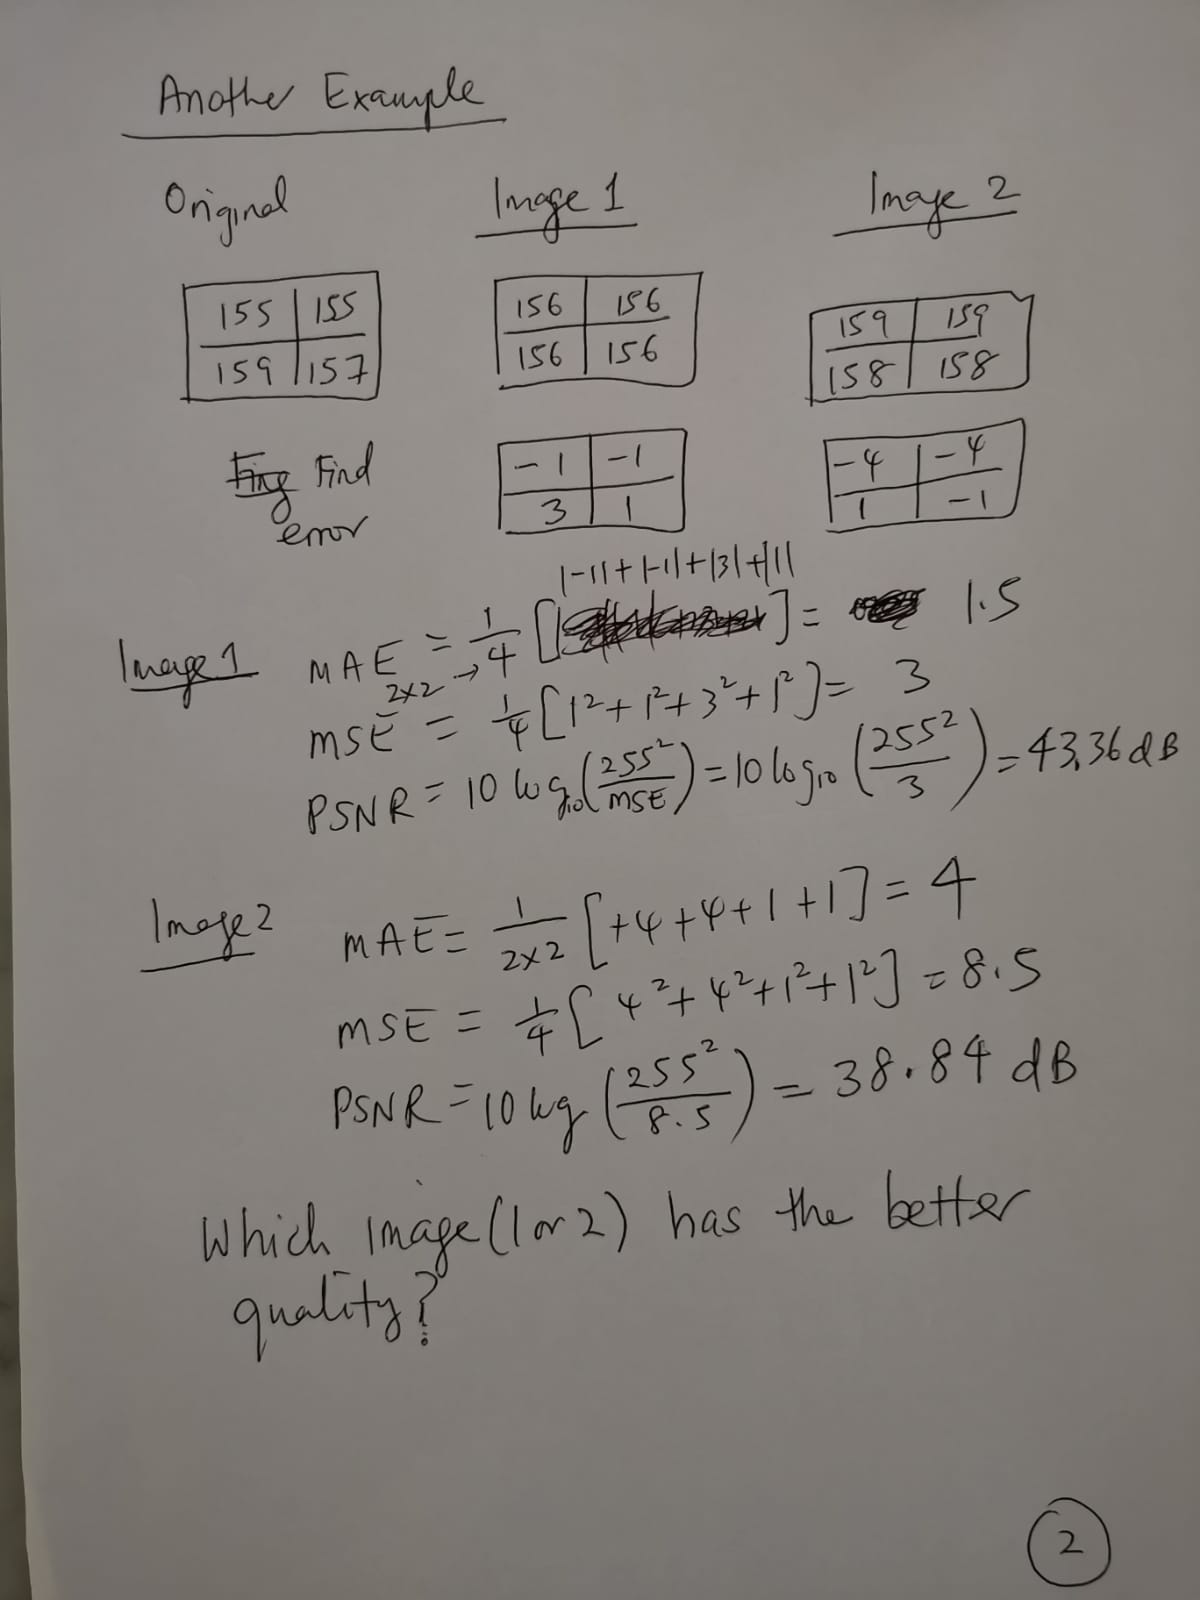 Another Example
Original Image 1 Image 2
155 155 156 156 159 159
159 157 156 156 158 158
Find -1 -1 -4 -4
error 3 1 1 -1
|-1|+|-1|+|3|+|1|
Image 1 MAE = 1/4 [ ] = 1.5
2×2 →
MSE = 1/4 [1²+1²+3²+1²] = 3
PSNR = 10 log₁₀(255²/MSE) = 10 log₁₀(255²/3) = 43.36 dB
Image 2 MAE = 1/2×2 [+4+4+1+1] = 4
MSE = 1/4 [4²+4²+1²+1²] = 8.5
PSNR = 10 log (255²/8.5) = 38.84 dB
Which image (1 or 2) has the better
quality?
2